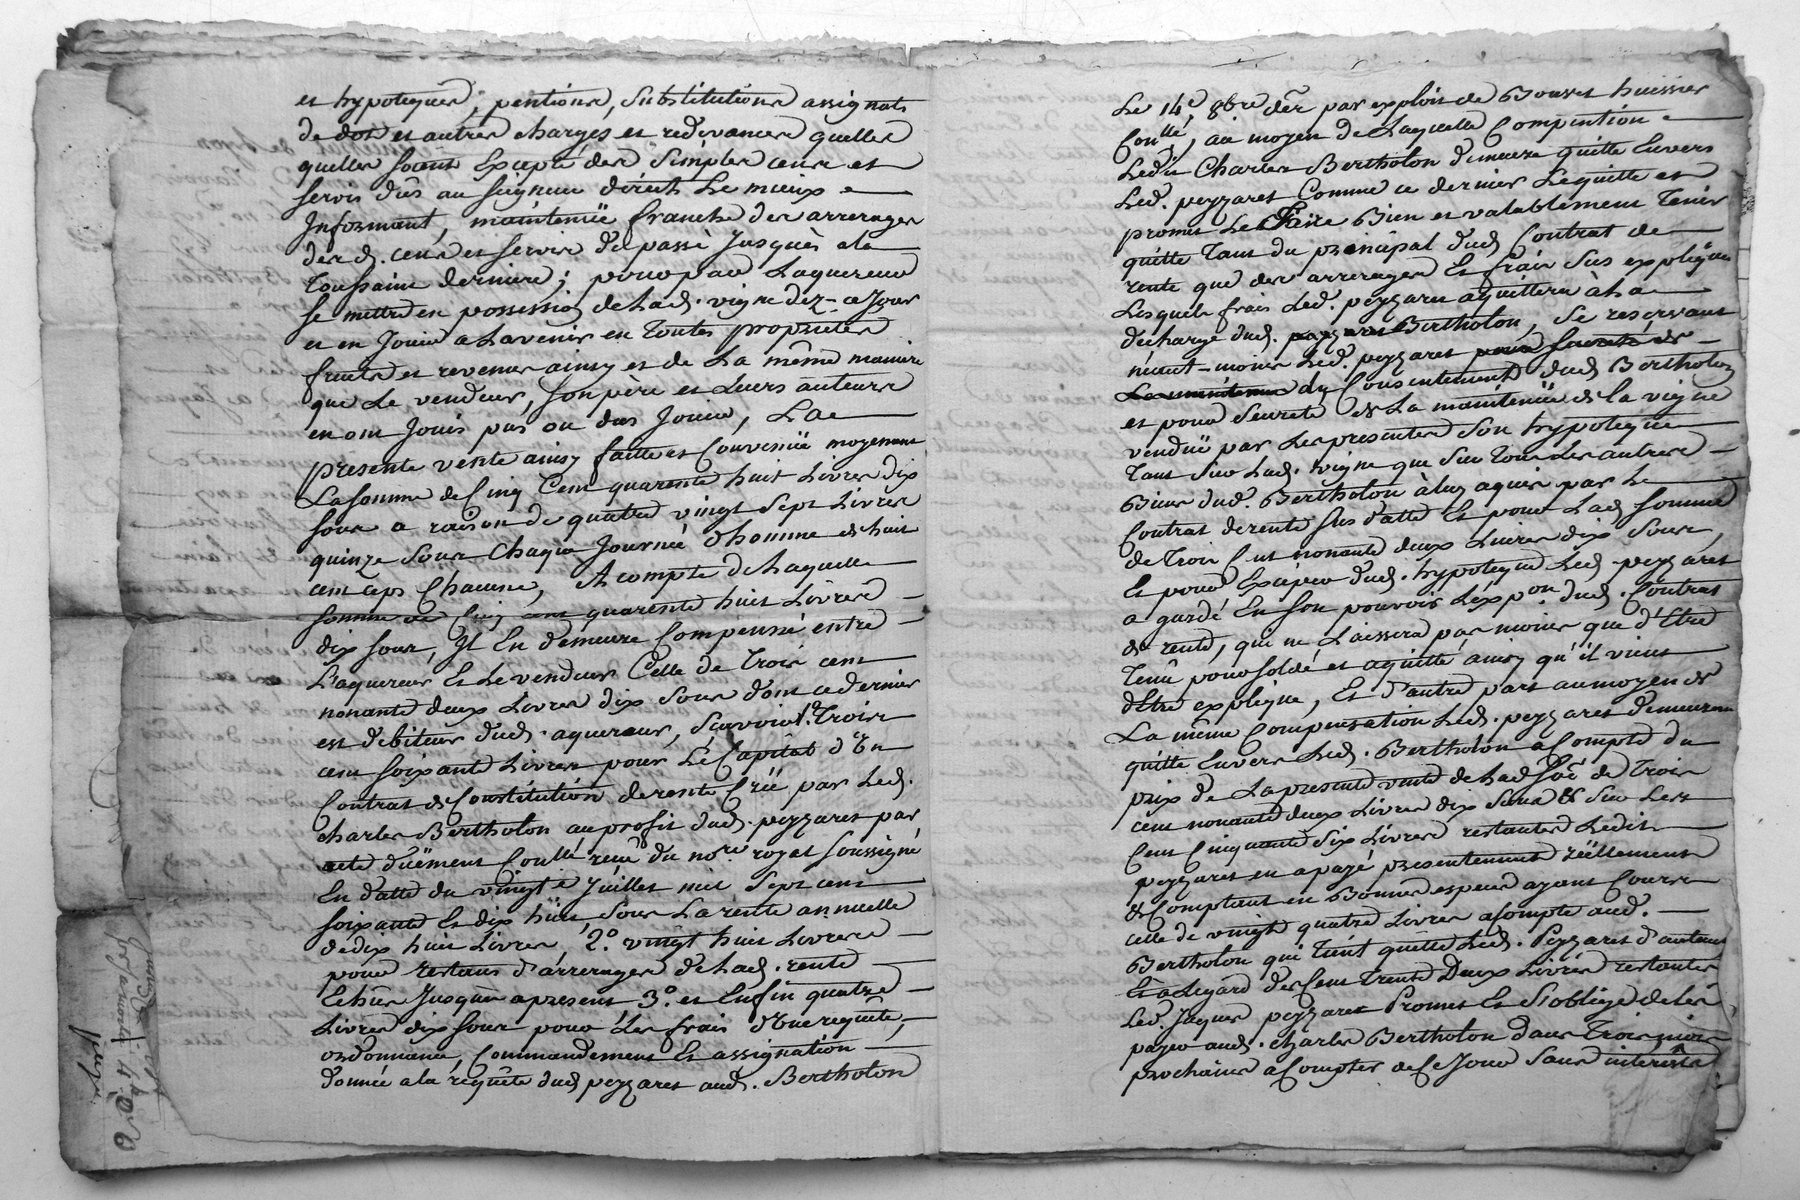 et hypoteques, pentions, substitutions assignats
de dot et autres charges et redevances quelles
quelles soient Excepté des simples cens et
servis dûs au seigneur dérects Le mieux
Informant, maintenüe franche des arrerages
des d. cens et servis du passé Jusques ala
Toussaint derniere; pour par Laquereur
se mettre en possession de lad. vigne dez-ce Jour
et en Jouir alavenir en Toutes propriétés
fruits et revenus ainsy et de La même maniere
que Le vendeur, son père et Leurs auteurs
en ont Jouis pus ou dus Jouir, La
presente vente ainsy faitte et Convenüe moyenant
La somme de Cinq Cent quarente huit Livres dix
sous a raison de quatre vingt sept Livres
quinze sous Chaque Journée d'homme de huit
cent ceps Chacune, A compte de Laquelle
somme de Cinq cent quarente huit Livres
dix sous, Il En demeure Compensé entre
L'aquereur Et Le vendeur Celle de Trois cent
nonante deux Livres dix sous dont ce dernier
est débiteur dud. aquereur, Sçavoir 1.º Trois
cent soixante Livres pour Le Capital d'Un
Contrat de Constitution de rente Créé par Led.
charles Bertholon au profit dud. peyzaret par
acte düement Coullé reçu du no.re royal soussigné
En datte du vingt Juillet mil sept cent
soixante Et dix huit, sous La rente annuelle
de dix huit Livres 2.º vingt huit Livres
pour restans d'arrerages de Lad. rente
Echus Jusques apresent 3.º et Enfin quatre
Livres dix sous pour Les frais d'Une requête,
ordonnance, Commandement Et assignation
donnée ala réquête dud. peyzaret aud. Bertholon
Le 14.e 8bre der par exploit de Bonnet huissier
Conllé, au moyen de Laquelle Compention
Ledit Charles Bertholon demeure quitte Envers
Led. peyzaret Comme ce dernier Le quitte et
promet Le Faire Bien et valablement Tenir
quitte Tant du principal dud. Contrat de
rente que des arrerages Et frais sus expliqués
Lesquels frais Led. peyzaret aquittera à La
décharge dud. Bertholon, Se reservant
néant-moins Led. peyzaret
du Consentement dud. Bertholon
et pour Seureté de La maintenüe de la vigne
vendüe par Les presentes son hypoteque
Tant Sur Lad. vigne que Sur Tous Les autres
Biens dud. Bertholon à luy aquis par Le
Contrat de rente sus datté Et pour Lad. somme
de Trois Cent nonante deux Livres dix sous,
Et pour Exiger dud. hypoteque Led. peyzaret
a gardé En son pouvoir L'exp.on dud. Contrat
de rente, qui ne Laissera pas moins que d'Etre
Tenû pour soldé et aquitté ainsy qu'il vient
d'Etre expliqué, Et d'autre part au moyen de
La même Compensation Led. peyzaret demeurera
quitte Envers Led. Bertholon a Compte du
prix de La presente vente de Lad. Soe de Trois
cent nonante deux Livres dix sous & sur Les
Cent Cinquante Six Livres restantes Ledit
peyzaret en a payé presentement réellement
& Comptant en Bonnes especes ayant Cours
celle de vingt quatre Livres a Compte aud.
Bertholon qui Tient quitte Led. Peyzaret d'autant
Et a L'egard des Cent Trente Deux Livres restantes
Led. Jaques peyzaret Promet Et S'oblige de Les
payer aud. charles Bertholon dans Trois mois
prochains a Compter de Ce Jour sans interêts